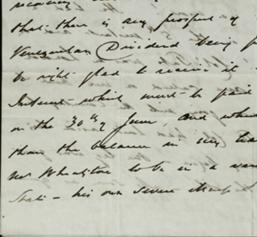 that there is any prospect of
Venezuelan Dividend being p
be right glad to receive it
Interest which must be paid
on the 30th of June, and wh
than the balance in my ha
not Wheatston to be in a
State - his own severe